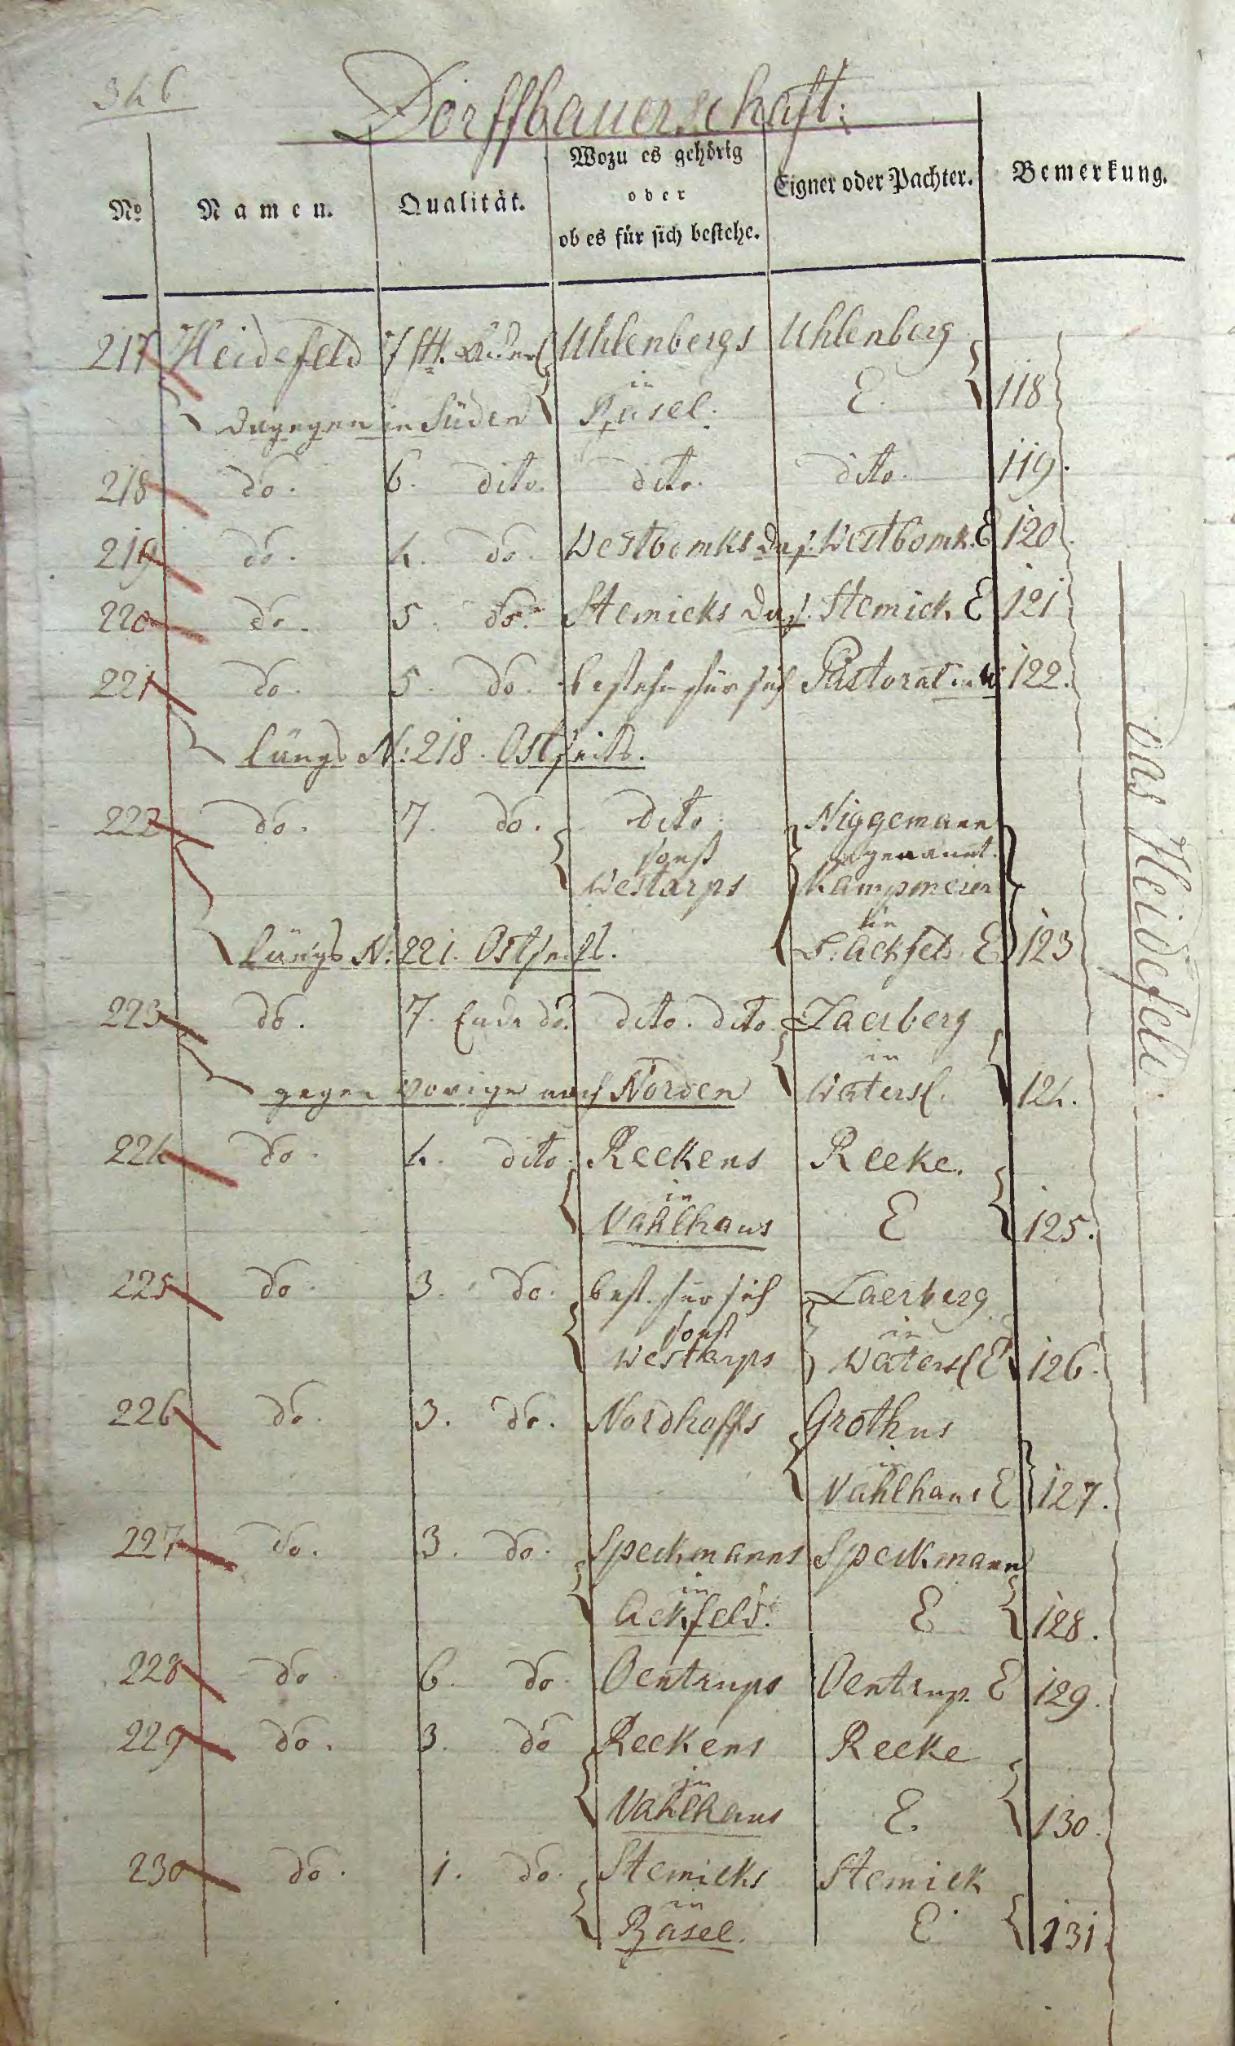 346.
Dorffbauerschaft:
No Namen. Qualität. Wozu es gehörig oder ob es für sich bestehe. Eigner oder Pachter. Bemerkung.
217 Heidefeld 7 Uhlenbergs Uhlenberg
dagegen in Süden in Rasel. E. 118
218 do. 6. dito. dito. dito. 119.
219 do. 4. do. Westbomks das. Westbomk. E 120.
220 do. 5. do. Stemicks das. Stemick E 121
221 do. 5. do. bestehe für sich Pastorat in W 122.
längs N: 218. Ostseits.
222 do. 7. do. dito. Niggemann
sonst genannt
Westarps Kampmeier
in
längs N: 221. Ostseits. S. Ackfeld. E 123
223 do. 7. Ende do. dito. dito. Laerberg
in
gegen vorige nach Norden Watersl. 124.
224 do. 4. dito. Reckens Recke.
in
Vahlhaus E 125.
225 do. 3. do. best. für sich Laerberg
sonst in
Westarps Watersl E 126.
226 do. 3. do. Nordhoffs Grothus
in
Vahlhaus E 127.
227 do. 3. do. Speckmanns Speckmann
in
Ackfeld. E 128.
228 do. 6. do. Oentrups Oentrup. E 129.
229 do. 3. do Reckens Recke
in
Vahlhaus E. 130.
230 do. 1. do. Stemicks Stemick
in
Rasel. E 131.
das Heidefeld.